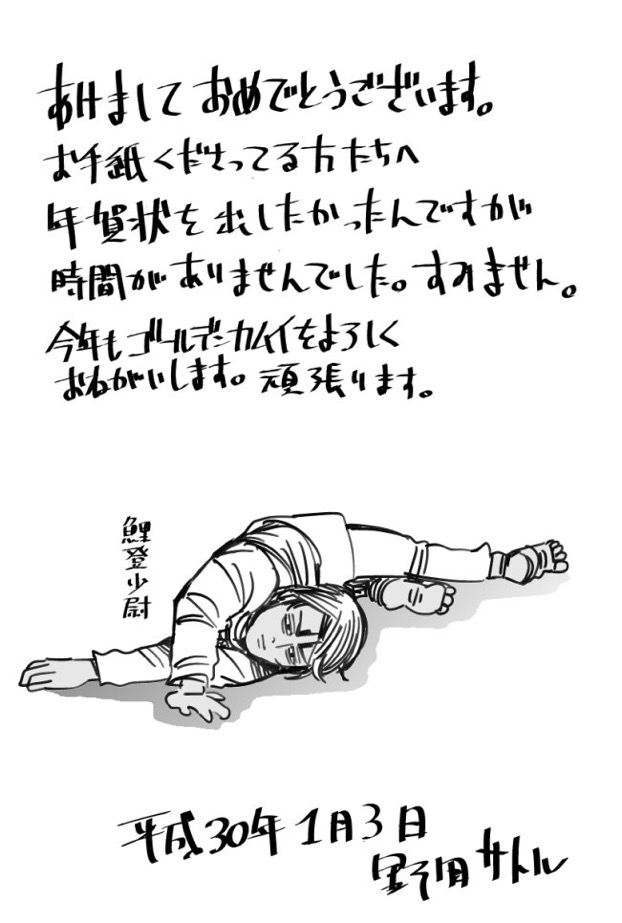 あけまして おめでとうございます。
お手紙くださってる方たちへ
年賀状を出したかったんですが
時間がありませんでした。すみません。
今年もゴールデンカムイをよろしく
おねがいします。頑張ります。
鯉登少尉
平成30年1月3日
野田サトル